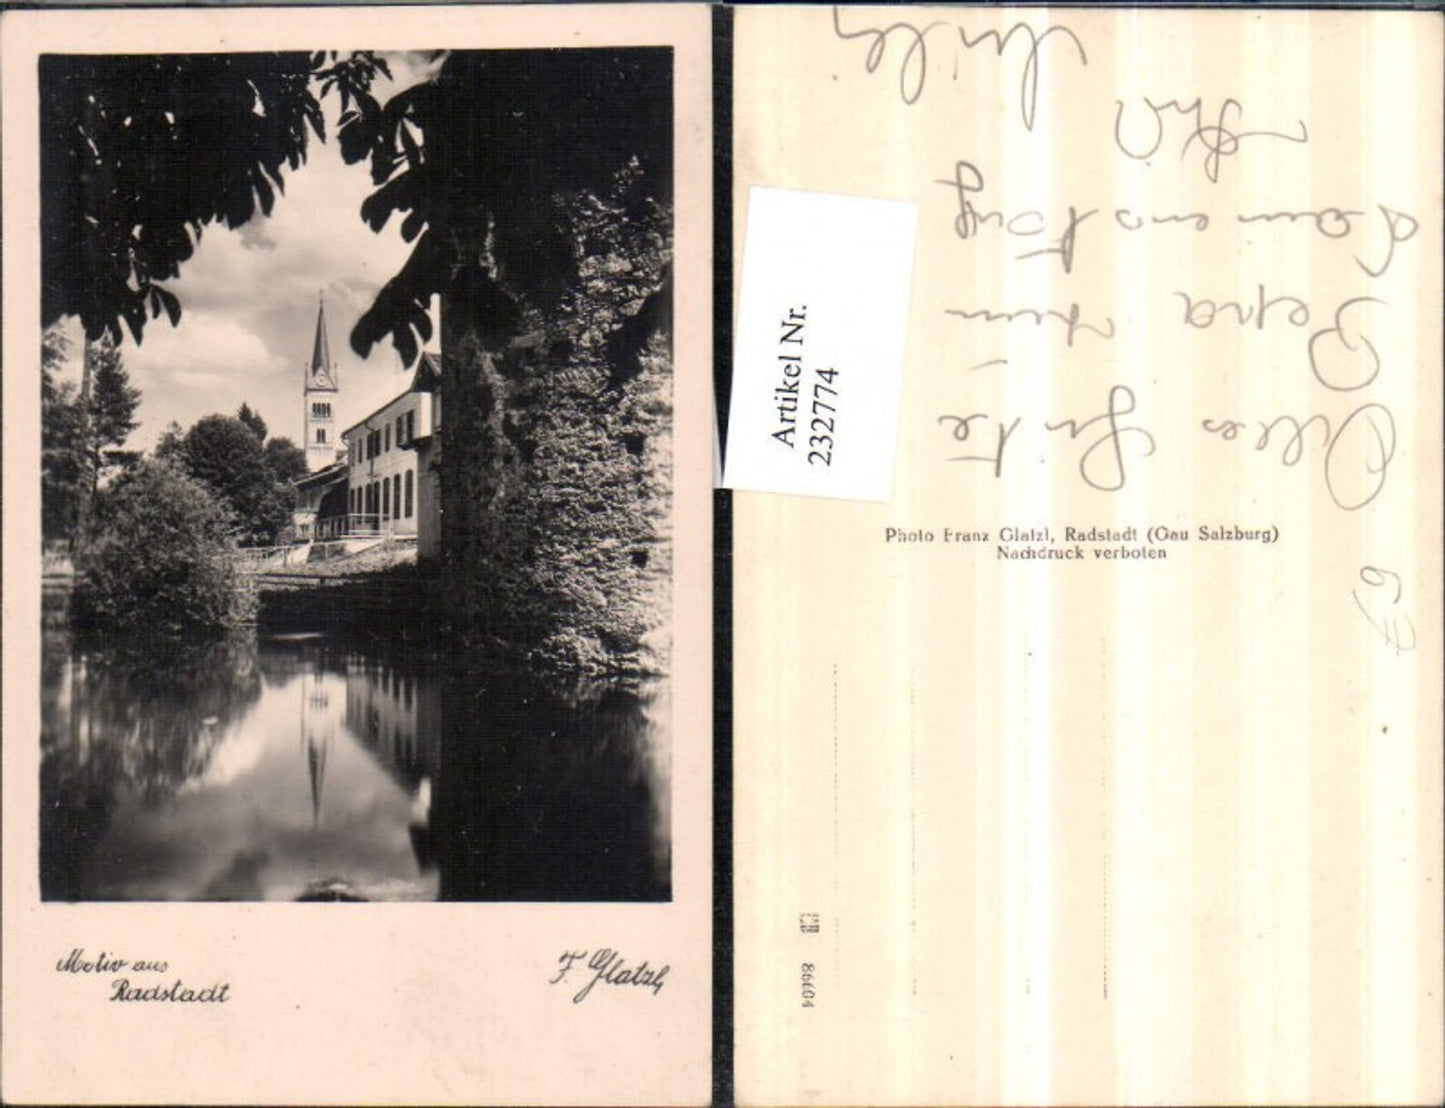 Motiv aus
Radstadt
F. Glatzl
Artikel Nr.
2322774
Alles Gute
zum
Ihr
Photo Franz Glatzl, Radstadt (Gau Salzburg)
Nachdruck verboten
86404